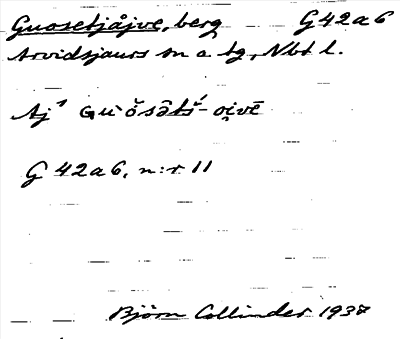 Guosetjåjve, berg G42a6
Arvidsjaurs sn o tg, Nbt l.
Aj¹ Gu̇ŏsǟtš́-oi̯vē
G 42a6, n:r 11
Björn Collinder 1937